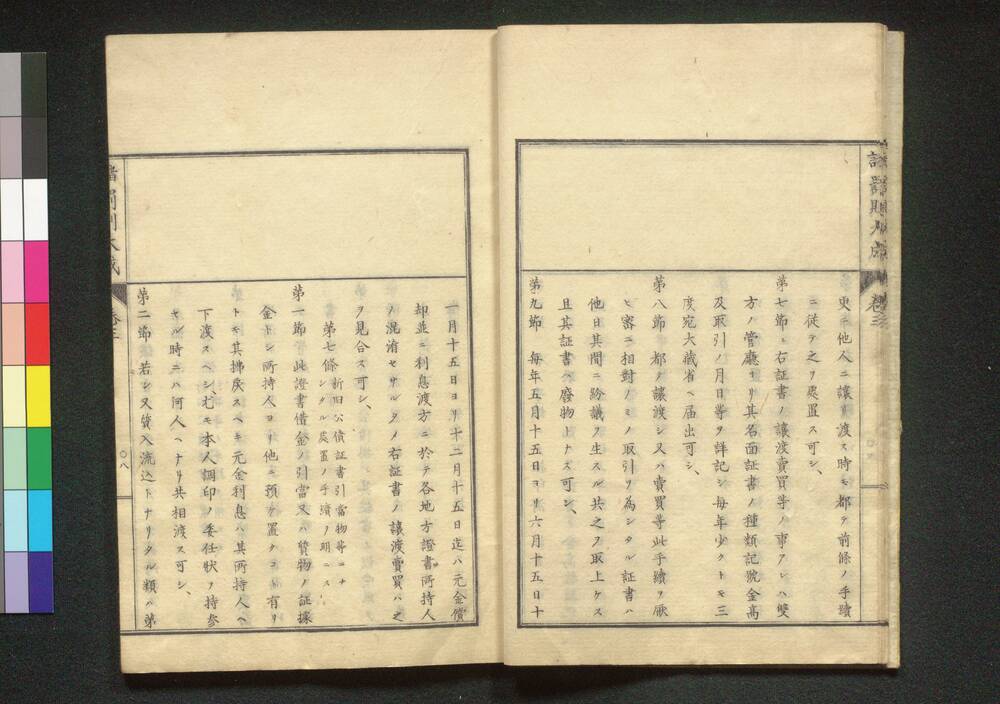 更ニ他人ニ讓リ渡ス時モ都テ前條ノ手續
ニ從テ之ヲ処置ス可シ、
第七節 右証書ノ讓渡賣買等ノ事アレハ雙
方ノ管廳ヨリ其名面証書ノ種類記號金髙
及取引ノ月日等ヲ詳記シ毎年少クトモ三
度宛大藏省ヘ届出可シ、
第八節 都テ讓渡シ又ハ賣買等此手續ヲ厭
ヒ審ニ相對ノミノ取引ヲ為シタル証書ハ
他日其間ニ紛議ヲ生スル共之ヲ取上ケス
且其証書ハ廢物トナス可シ、
第九節 毎年五月十五日ヨリ六月十五日十
一月十五日ヨリ十二月十五日迄ハ元金償
却並ニ利息渡方ニ於テ各地方證書所持人
ノ混淆セサルタメ右証書ノ讓渡賣買ハ之
ヲ見合ス可シ、
第七條 新旧公債証書引當物等ニナ
シタル處置ノ手續ヲ明ニス
第一節 此證書借金ノ引當又ハ質物ノ証據
金トシ所持人ヨリ他ニ預ケ置クヿ有リ
トモ其拂戻スヘキ元金利息ハ其所持人ヘ
下渡スヘシ尤モ本人調印ノ委任狀ヲ持参
セル時ニハ何人ヘナリ共相渡ス可シ、
第二節 若シ又質入流込トナリタル類ハ第
諸罰則大成
卷三
〇八